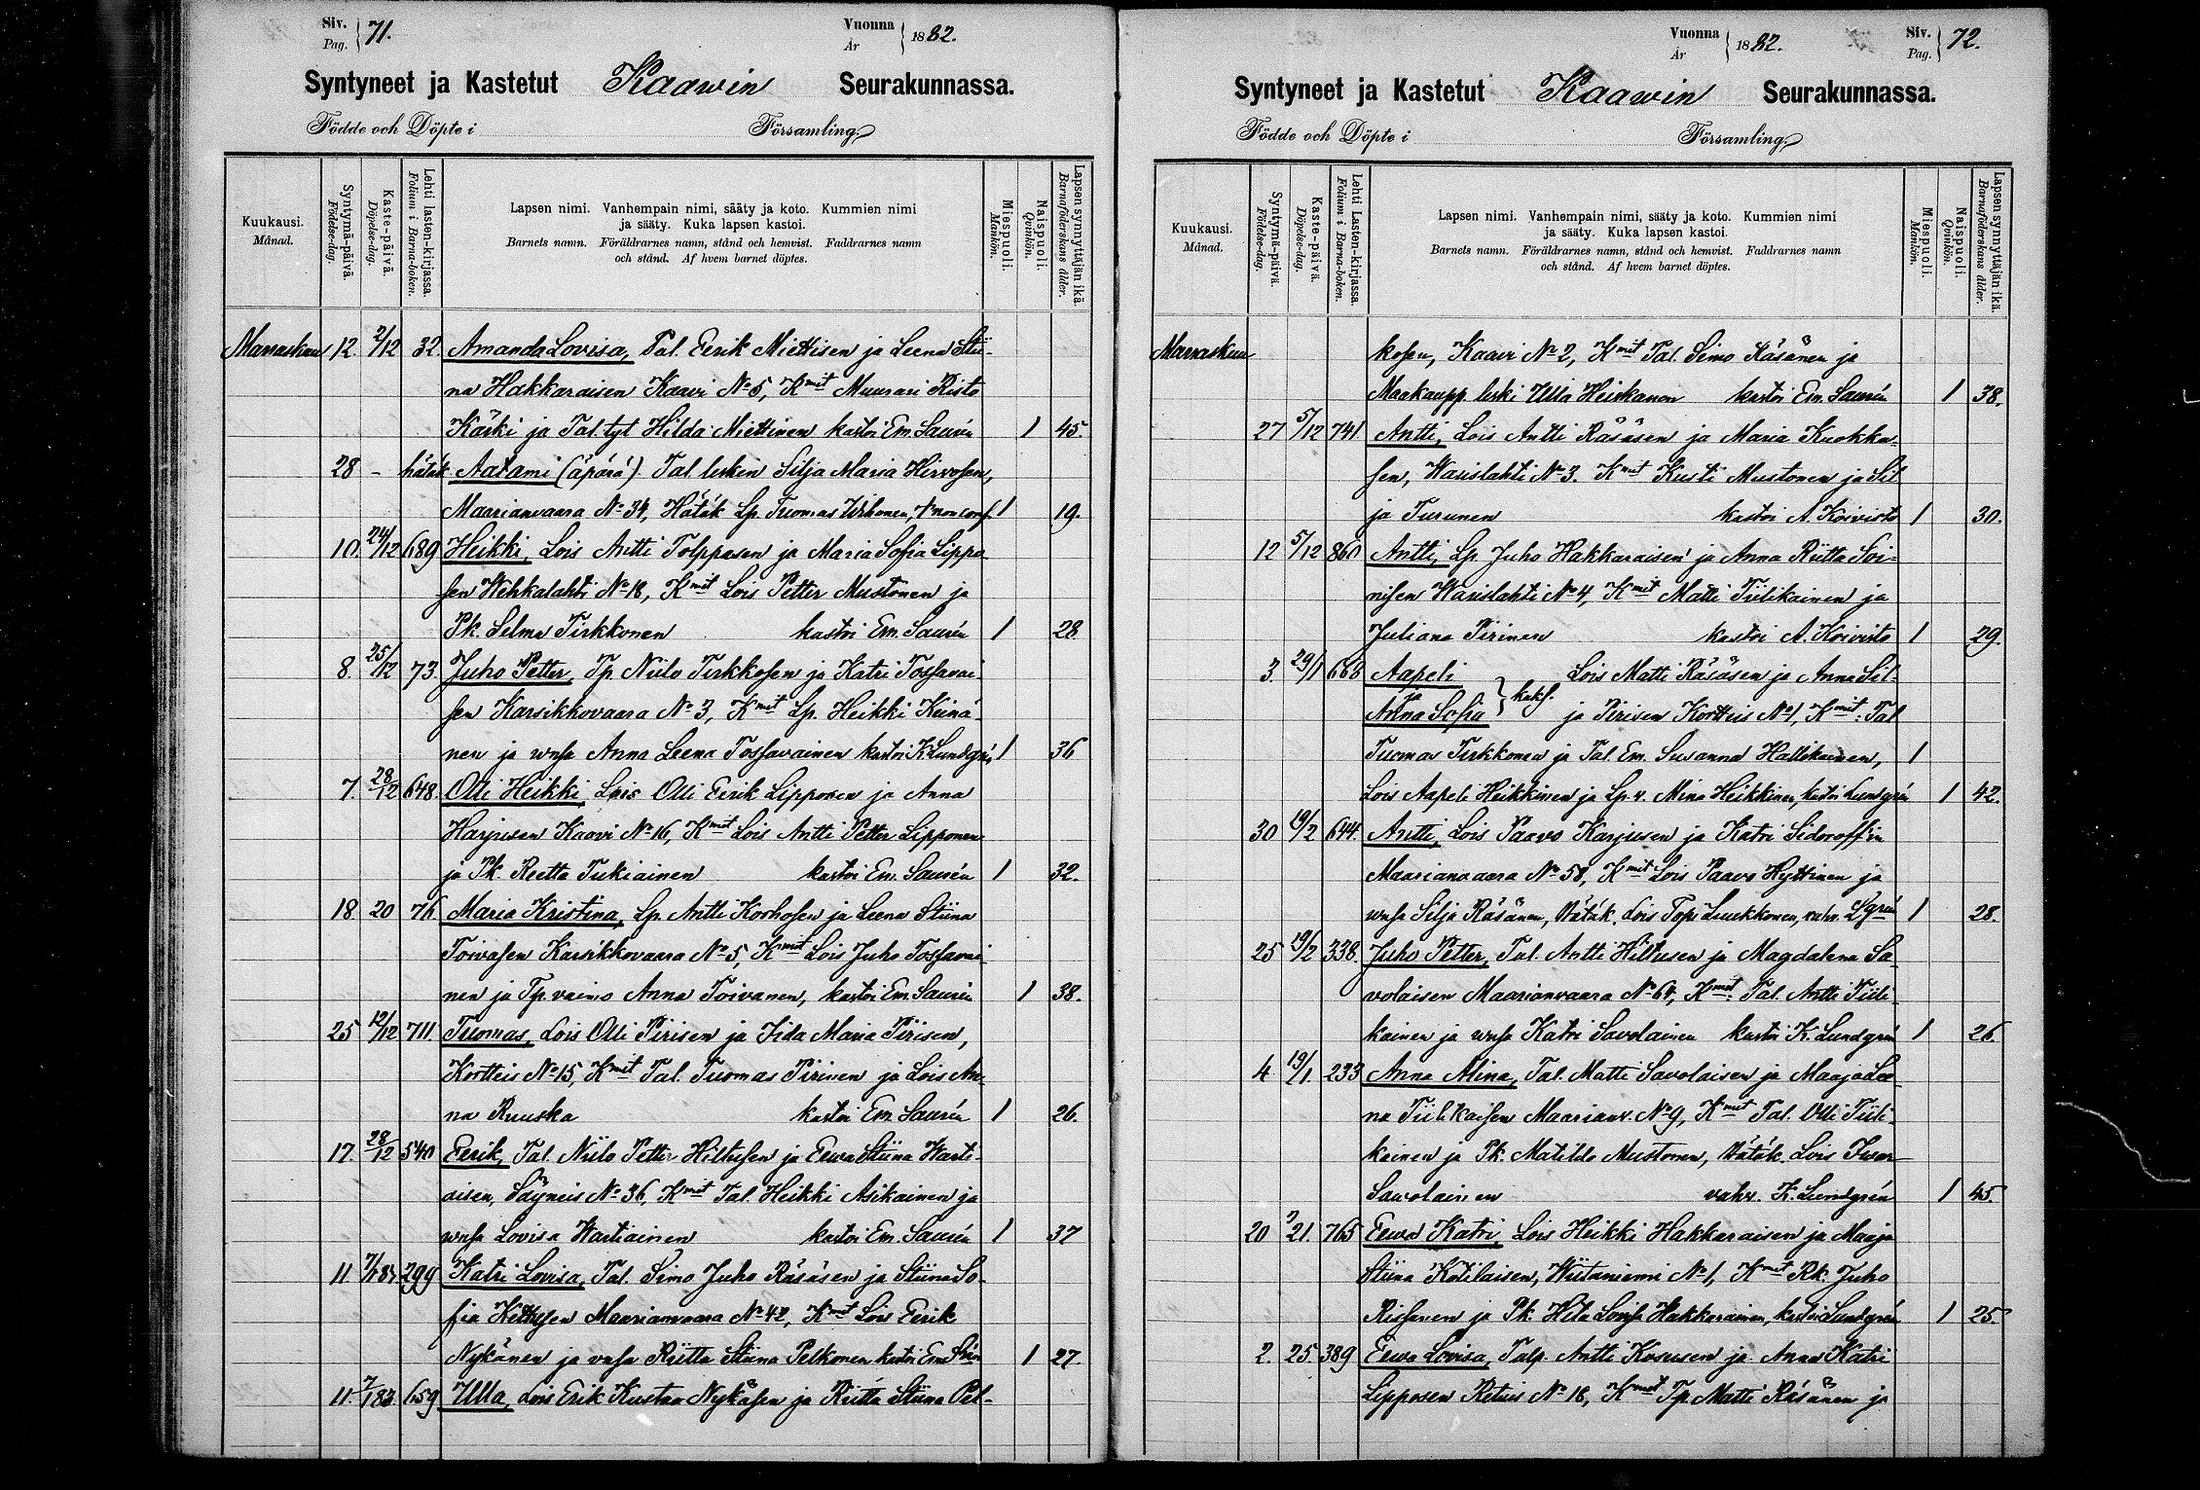 Siv. Pag. 71. Vuonna År 1882.
Syntyneet ja Kastetut Kaawin Seurakunnassa.
Födde och Döpte i Församling.
Kuukausi. Månad.
Syntymä-päivä. Födelse-dag.
Kaste-päivä. Döpelse-dag.
Lehti lasten-kirjassa. Folium i Barna-boken.
Lapsen nimi. Vanhempain nimi, sääty ja koto. Kummien nimi
ja sääty. Kuka lapsen kastoi.
Barnets namn. Föräldrarnes namn, stånd och hemvist. Faddrarnes namn
och stånd. Af hvem barnet döptes.
Miespuoli. Mankön.
Naispuoli. Qvinkön.
Lapsen synnyttäjän ikä. Barnaföderskans ålder.
Marraskuu 12. 2/12 32. Amanda Lovisa, Tal. Eerik Miettisen ja Leena Stii-
na Hakkaraisen Kaavi No 5, Kmit Muurari Risto
Käski ja Tal. tyt Hilda Miettinen kastoi Em. Saurén 1 45.
28 - hätäk. Aatami (äpärä) Tal. lesken Silja Maria Hirvosen,
Maarianvaara No 34, Hätäk Lp. Tuomas 1 19.
10. 24/12 689 Heikki, Lois Antti Tolppasen ja Maria Sofia Lippo-
sen Wehkalahti No 18, Kmit Lois Petter Mustonen ja
Pk. Selma Tirkkonen kastoi Em. Saurén 1 28
8. 25/12 73. Juho Petter, Tp. Niilo Tirkkosen ja Katri Tossavai-
sen Karsikkovaara No 3, Kmit Lp. Heikki Keinä-
nen ja wmsa Anna Leena Tossavainen kastoi K. Lundgrén 1 36
7. 28/12 648. Olli Heikki, Lois Olli Eerik Lipposen ja Anna
Harjusen Kaavi No 16, Kmit Lois Antti Petter Lipponen
ja Pk. Reetta Tukiainen kastoi Em. Saurén 1 32.
18 20 76 Maria Kristina, Lp. Antti Korhosen ja Leena Stiina
Toivasen Karsikkovaara No 5, Kmit Lois Juho Tossavai-
nen ja Tp. vaimo Anna Toivanen, kastoi Em. Saurén 1 38.
25 12/12 711. Tuomas, Lois Olli Pirisen ja Iida Maria Pirisen,
Kortteis No 15, Kmit Tal. Tuomas Pirinen ja Lois An-
na Ruuska kastoi Em. Saurén 1 26.
17. 28/12 540 Eerik, Tal. Niilo Petter Hiltusen ja Eewa Stiina Warti-
aisen, Säyneis No 36, Kmit Tal. Heikki Asikainen ja
wmsa Lovisa Wartiainen kastoi Em. Saurén 1 37
11 299 Katri Lovisa, Tal. Simo Juho Räsäsen ja Stiina So-
fia Maarianvaara No 42, Kmit Lois Eerik
Nykänen ja wmsa Riitta Stiina Pelkonen kastoi Em. 1 27.
11. 659 Ulla, Lois Erik Kustaa Nykäsen ja Riitta Stiina Pel-
Vuonna År 1882. Siv. Pag. 72.
Syntyneet ja Kastetut Kaawin Seurakunnassa.
Födde och Döpte i Församling.
Kuukausi. Månad.
Syntymä-päivä. Födelse-dag.
Kaste-päivä. Döpelse-dag.
Lehti Lasten-kirjassa. Folium i Barna-boken.
Lapsen nimi. Vanhempain nimi, sääty ja koto. Kummien nimi
ja sääty. Kuka lapsen kastoi.
Barnets namn. Föräldrarnes namn, stånd och hemvist. Faddrarnes namn
och stånd. Af hvem barnet döptes.
Miespuoli. Mankön.
Naispuoli. Qvinkön.
Lapsen synnyttäjän ikä. Barnaföderskans ålder.
Marraskuu kosen, Kaavi No 2, Kmit Tal. Simo Räsänen ja
Maakaupp. leski Ulla Heiskanen kastoi Em. Saurén 1 38.
27 5/12 741 Antti, Lois Antti Räsäsen ja Maria Kuokka-
sen, Warislahti No 3. Kmit Kusti Mustonen ja Sil-
ja Turunen kastoi A. Koivisto 1 30.
12 5/12 860 Antti, Lp. Juho Hakkaraisen ja Anna Riitta Soi-
nisen Warislahti No 4, Kmit Matti Tiilikainen ja
Juliana Pirinen kastoi A. Koivisto 1 29.
3. 29/1 668 Aapeli Lois Matti Räsäsen ja Anna Sil-
ja Anna Sofia } kaks. ja Pirisen Kortteis No 1, Kmit: Tal
Tuomas Tirkkonen ja Tal. Em. Susanna Hallikainen, 1
Lois Aapeli Heikkinen ja Lp. v. Mina Heikkinen, kastoi Lundgrén 1 42.
30 19/2 644. Antti, Lois Paavo Karjusen ja Katri Sidoroff'in
Maarianvaara No 58, Kmit Lois Paavo Hyttinen ja
wmsa Silja Räsänen, Hätäk. Lois Topi Luukkonen, vahv. L'grén 1 28.
25 19/2 338. Juho Petter, Tal. Antti Hiltusen ja Magdalena Sa-
volaisen Maarianvaara No 64, Kmit: Tal. Antti Tiili-
kainen ja wmsa Katri Savolainen kastoi K. Lundgrén 1 26.
4 19/1. 233 Anna Alina, Tal. Matti Savolaisen ja Maaja Lee-
na Tiilikaisen Maarianv. No 9, Kmit Tal. Olli Tiili-
kainen ja Pk. Matilda Mustonen, Hätäk. Lois
Sawolainen vahv. K. Lundgrén 1 45.
20 ?21. 765 Eewa Katri, Lois Heikki Hakkaraisen ja Maaja
Stiina Kotilaisen, Wiitaniemi No 1, Kmit Rk. Juho
Rissanen ja Pk. Heta Lovisa Hakkarainen, kastoi Lundgrén 1 25.
2. 25. 389 Eewa Lovisa, Talp. Antti Kosusen ja Anna Katri
Lipposen Retuis No 18, Kmit Tp. Matti Räsänen ja